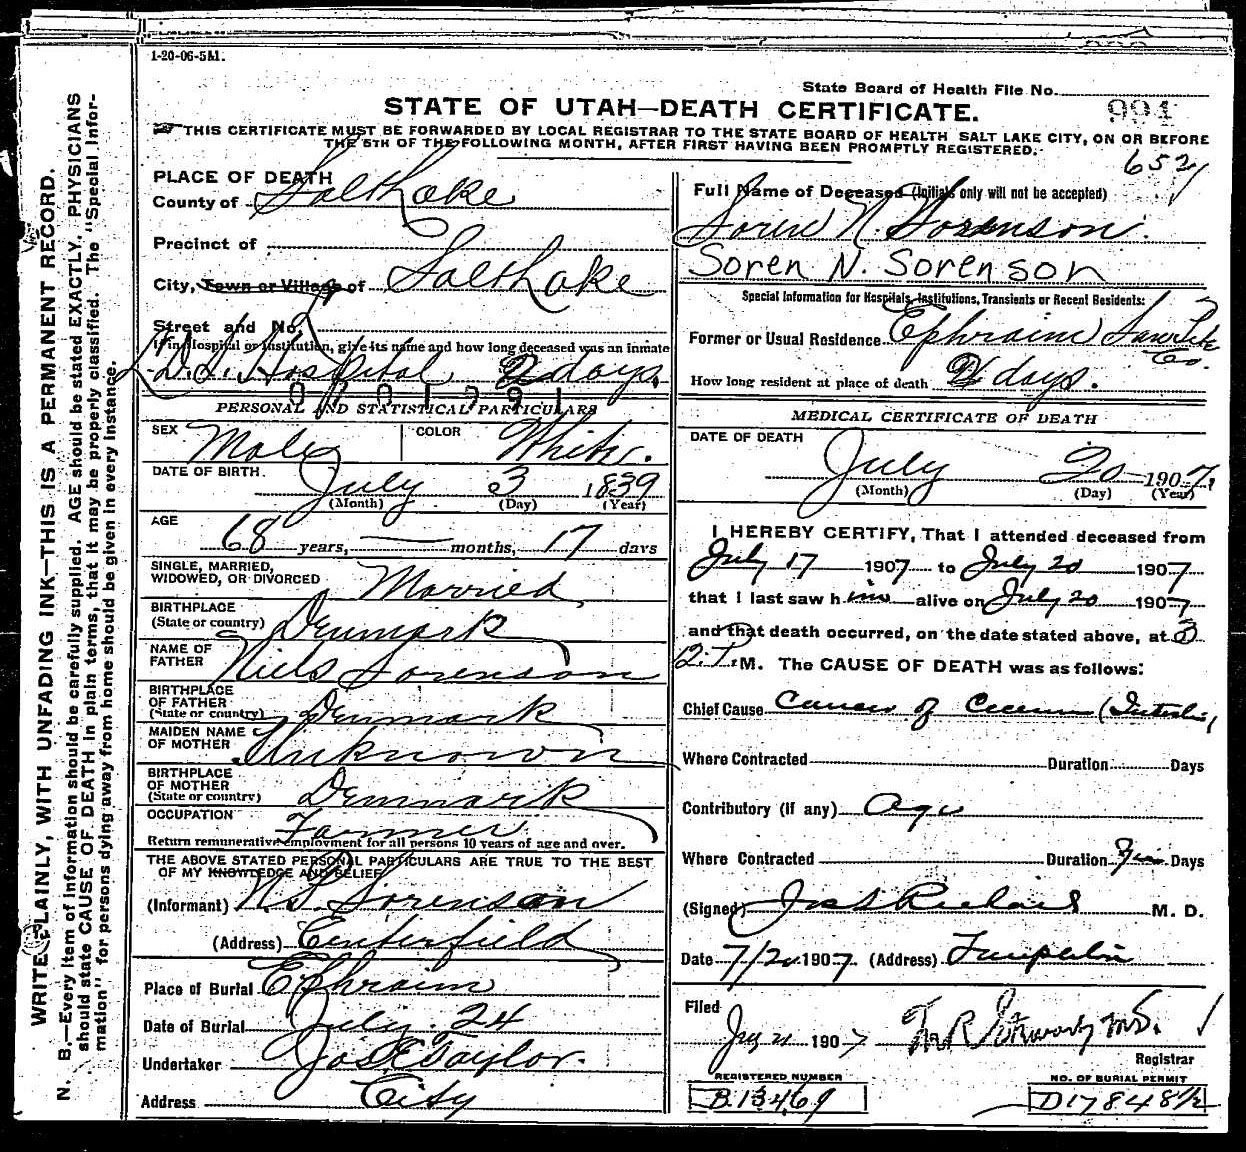 1-20-06-5M.
State Board of Health File No. 994
STATE OF UTAH—DEATH CERTIFICATE.
THIS CERTIFICATE MUST BE FORWARDED BY LOCAL REGISTRAR TO THE STATE BOARD OF HEALTH SALT LAKE CITY, ON OR BEFORE
THE 5TH OF THE FOLLOWING MONTH, AFTER FIRST HAVING BEEN PROMPTLY REGISTERED.
652
WRITE PLAINLY, WITH UNFADING INK—THIS IS A PERMANENT RECORD.
N. B.—Every item of information should be carefully supplied. AGE should be stated EXACTLY. PHYSICIANS
should state CAUSE OF DEATH in plain terms, that it may be properly classified. The "Special Infor-
mation" for persons dying away from home should be given in every instance.
PLACE OF DEATH
County of Salt Lake
Precinct of
City, Town or Village of Salt Lake
Street and No.
If in Hospital or Institution, give its name and how long deceased was an inmate
L.D.S. Hospital 2 days
PERSONAL AND STATISTICAL PARTICULARS
SEX Male COLOR White.
DATE OF BIRTH. July 3 1839
(Month) (Day) (Year)
AGE
68 years, — months, 17 days
SINGLE, MARRIED,
WIDOWED, OR DIVORCED Married
BIRTHPLACE
(State or country) Denmark
NAME OF
FATHER Niels Sorenson
BIRTHPLACE
OF FATHER
(State or country) Denmark
MAIDEN NAME
OF MOTHER Unknown
BIRTHPLACE
OF MOTHER
(State or country) Denmark
OCCUPATION Farmer
Return remunerative employment for all persons 10 years of age and over.
THE ABOVE STATED PERSONAL PARTICULARS ARE TRUE TO THE BEST
OF MY KNOWLEDGE AND BELIEF
(Informant) N.S. Sorenson
(Address) Centerfield
Place of Burial Ephraim
Date of Burial July. 24
Undertaker Jos E Taylor.
Address City
Full Name of Deceased (Initials only will not be accepted)
Soren N. Sorenson.
Soren N. Sorenson
Special Information for Hospitals, Institutions, Transients or Recent Residents:
Former or Usual Residence Ephraim San Pete
Co.
How long resident at place of death 2 days.
MEDICAL CERTIFICATE OF DEATH
DATE OF DEATH
July 20 1907.
(Month) (Day) (Year)
I HEREBY CERTIFY, That I attended deceased from
July 17 1907 to July 20 1907
that I last saw him alive on July 20 1907
and that death occurred, on the date stated above, at 3
P.M. The CAUSE OF DEATH was as follows:
Chief Cause Cancer of Cecum (Intestine)
Where Contracted Duration Days
Contributory (if any) Age
Where Contracted Duration Days
(Signed) Jos S Richards M. D.
Date 7/20 1907. (Address) Templeton
Filed
July 21 1907 M.D.
Registrar
REGISTERED NUMBER
B.13469
NO. OF BURIAL PERMIT
D17848½